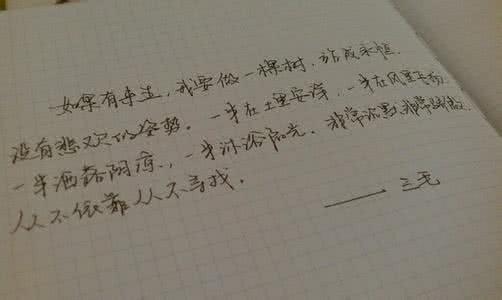 如果有来生,我要做一棵树,站成永恒.
没有悲欢的姿势。一半在土里安详,一半在风里飞扬
一半洒落阴凉,一半沐浴阳光.非常沉默非常骄傲.
从不依靠从不寻找.
—— 三毛